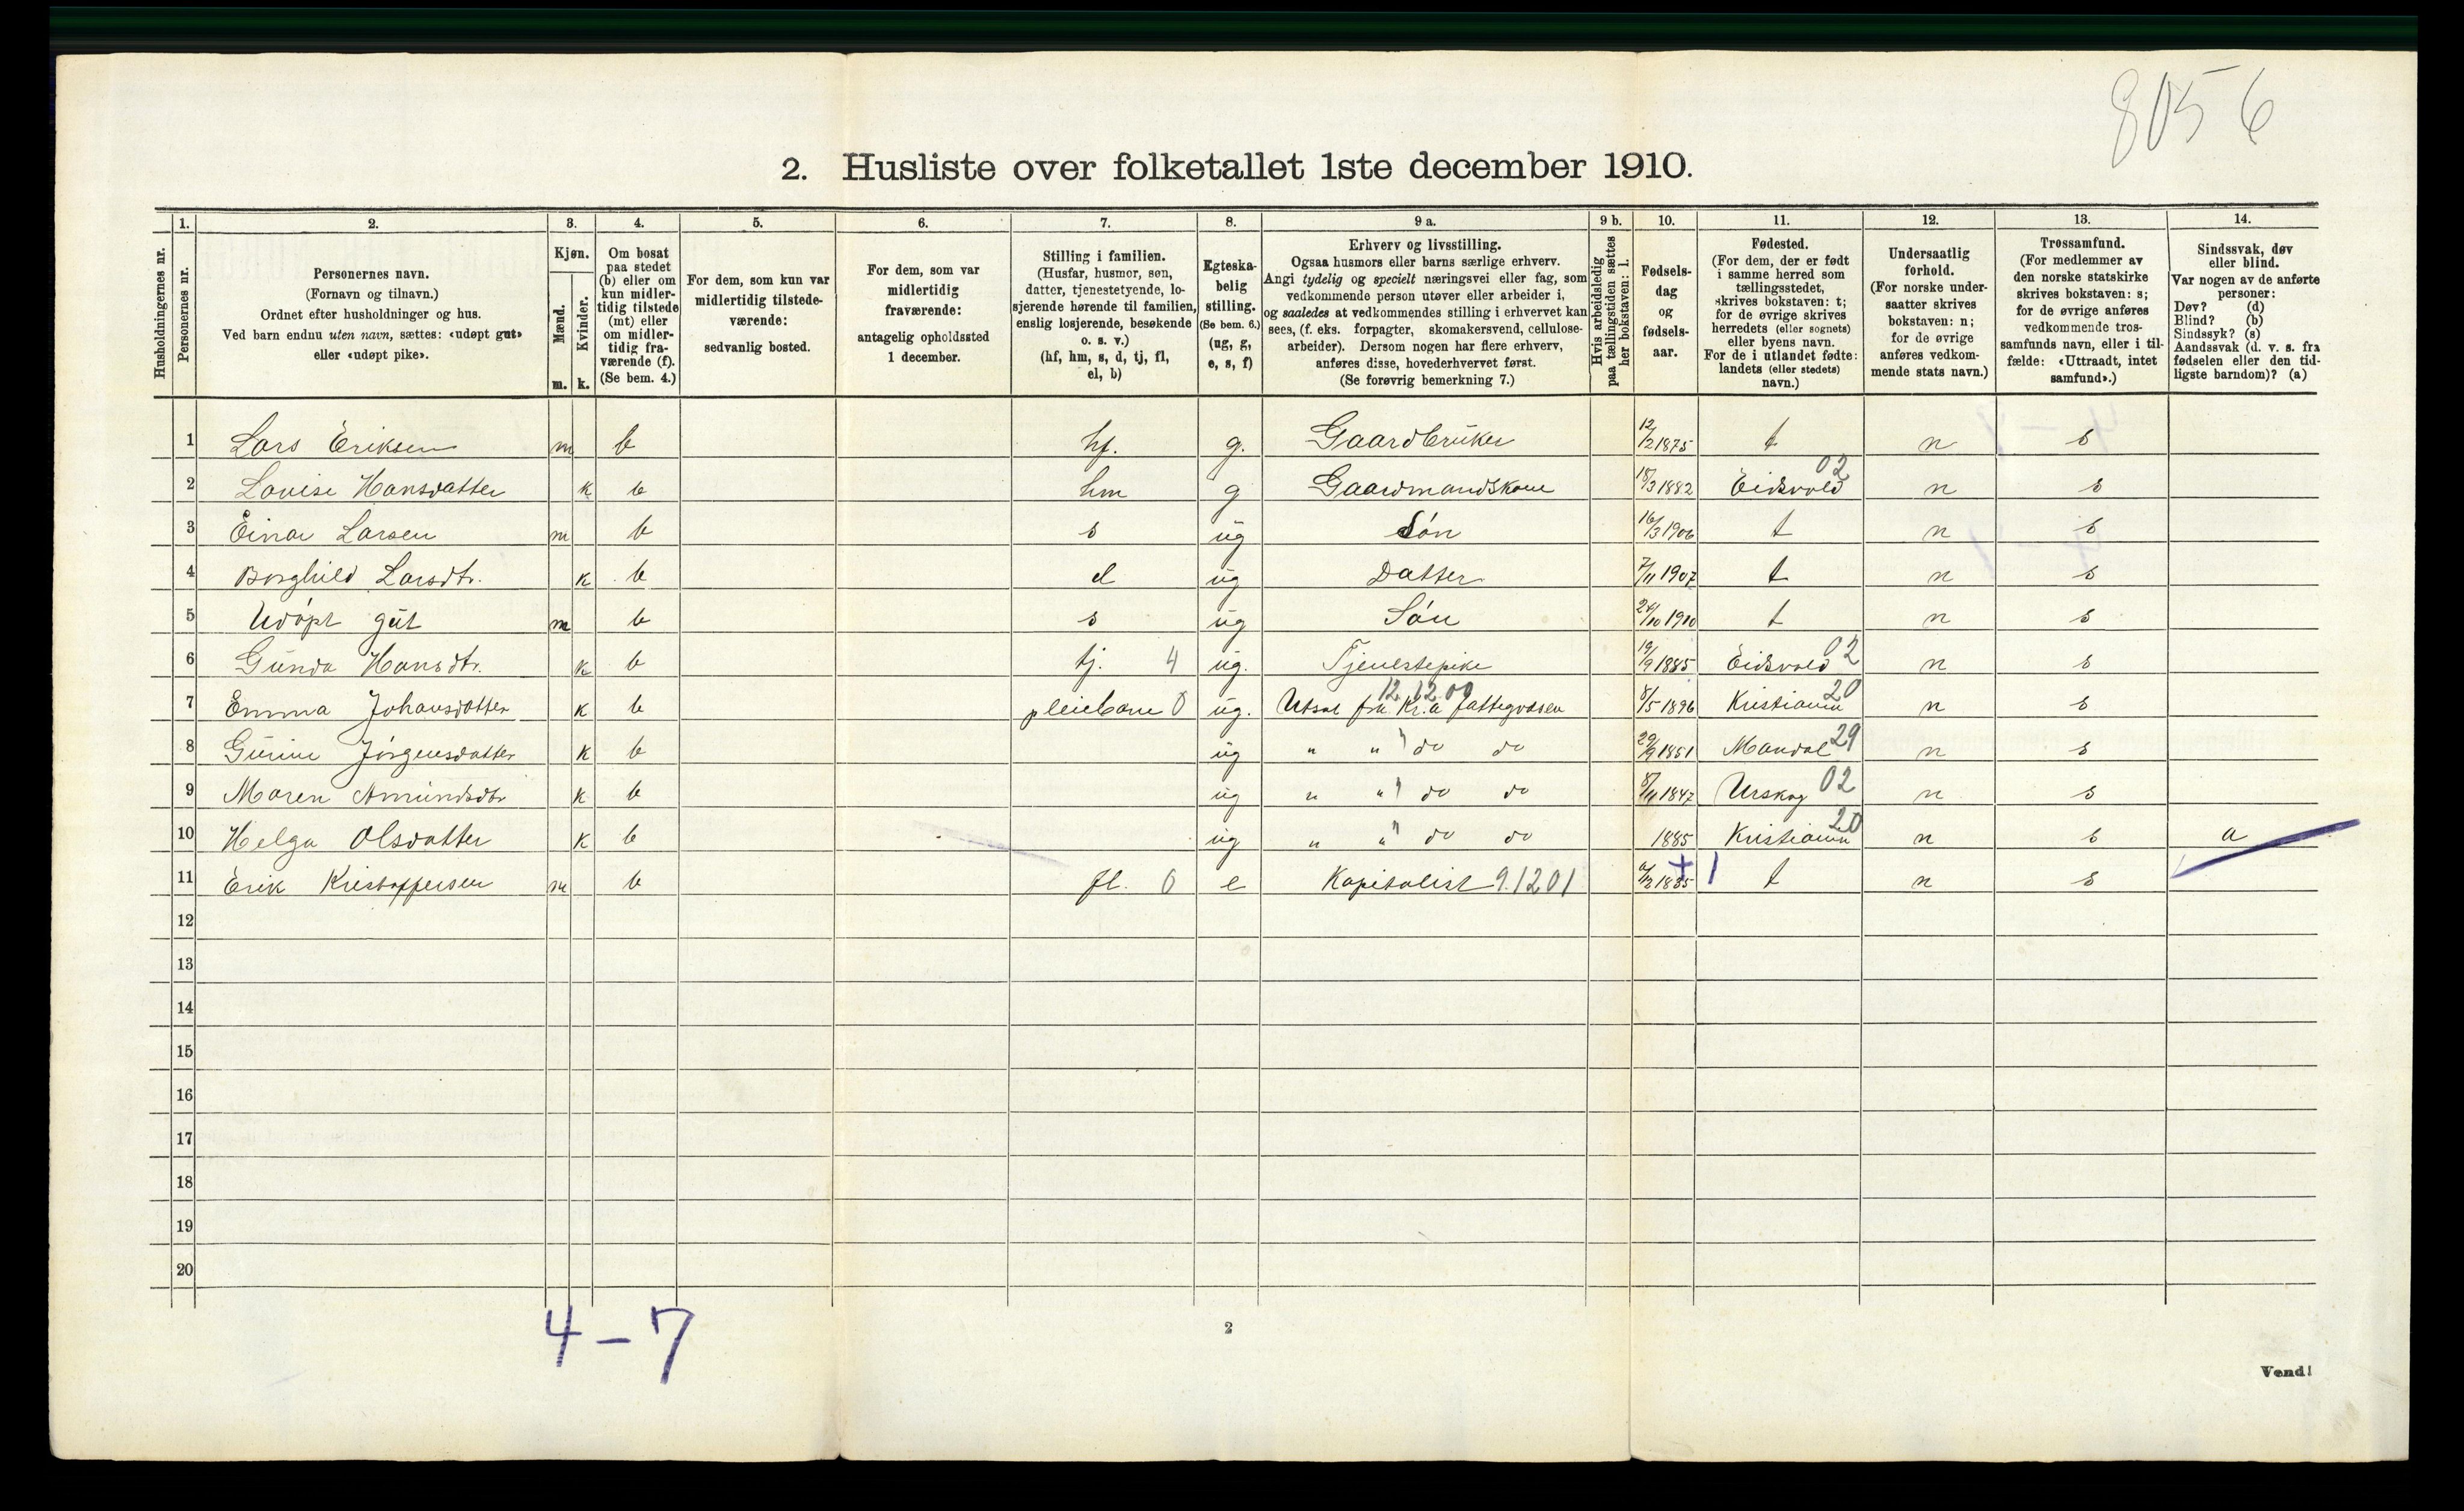 8056
2. Husliste over folketallet 1ste december 1910.
Husholdningernes nr.
1. Personernes nr.
2. Personernes navn. (Fornavn og tilnavn.) Ordnet efter husholdninger og hus. Ved barn endnu uten navn, sættes: «udøpt gut» eller «udøpt pike».
3. Kjøn. Mænd. m. Kvinder. k.
4. Om bosat paa stedet (b) eller om kun midlertidig tilstede (mt) eller om midlertidig fraværende (f). (Se bem. 4.)
5. For dem, som kun var midlertidig tilstedeværende: sedvanlig bosted.
6. For dem, som var midlertidig fraværende: antagelig opholdssted 1 december.
7. Stilling i familien. (Husfar, husmor, søn, datter, tjenestetyende, losjerende hørende til familien, enslig losjerende, besøkende o. s. v.) (hf, hm, s, d, tj, fl, el, b)
8. Egteskabelig stilling. (Se bem. 6.) (ug, g, e, s, f)
9 a. Erhverv og livsstilling. Ogsaa husmors eller barns særlige erhverv. Angi tydelig og specielt næringsvei eller fag, som vedkommende person utøver eller arbeider i, og saaledes at vedkommendes stilling i erhvervet kan sees, (f. eks. forpagter, skomakersvend, cellulosearbeider). Dersom nogen har flere erhverv, anføres disse, hovederhvervet først. (Se forøvrig bemerkning 7.)
9 b. Hvis arbeidsledig paa tællingstiden sættes her bokstaven: l.
10. Fødselsdag og fødselsaar.
11. Fødested. (For dem, der er født i samme herred som tællingsstedet, skrives bokstaven: t; for de øvrige skrives herredets (eller sognets) eller byens navn. For de i utlandet fødte: landets (eller stedets) navn.)
12. Undersaatlig forhold. (For norske undersaatter skrives bokstaven: n; for de øvrige anføres vedkommende stats navn.)
13. Trossamfund. (For medlemmer av den norske statskirke skrives bokstaven: s; for de øvrige anføres vedkommende trossamfunds navn, eller i tilfælde: «Uttraadt, intet samfund».)
14. Sindssvak, døv eller blind. Var nogen av de anførte personer: Døv? (d) Blind? (b) Sindssyk? (s) Aandssvak (d. v. s. fra fødselen eller den tidligste barndom)? (a)
1 Lars Eriksen m b hf. g. Gaardbruker 12/2 1875 t n s
2 Lovise Hansdatter k b hm g Gaardmandskone 18/3 1882 Eidsvold 02 n s
3 Einar Larsen m b s ug Søn 16/3 1906 t n s
4 Borghild Larsdtr. k b d ug Datter 7/11 1907 t n s
5 Udøpt gut m b s ug Søn 24/10 1910 t n s
6 Gunda Hansdtr. k b tj. 4 ug. Tjenestepike 19/9 1885 Eidsvold 02 n s
7 Emma Johansdatter k b pleiebarn 0 ug. Utsat fra Kr.a fattigvæsen 12.12.00 8/5 1896 Kristiania 20 n s
8 Gurine Jörgensdatter k b ug " " do do 29/9 1851 Mandal 29 n s
9 Maren Amundsdtr k b ug " " do do 8/11 1847 Urskog 02 n s
10 Helga Olsdatter k b ug " " do do 1885 Kristiania 20 n s a
11 Erik Kristoffersen m b fl. 0 e Kapitalist 9.1201 1835 + 1 t n s
12
13
14
15
16
17
18
19
20
4 - 7
2
Vend!